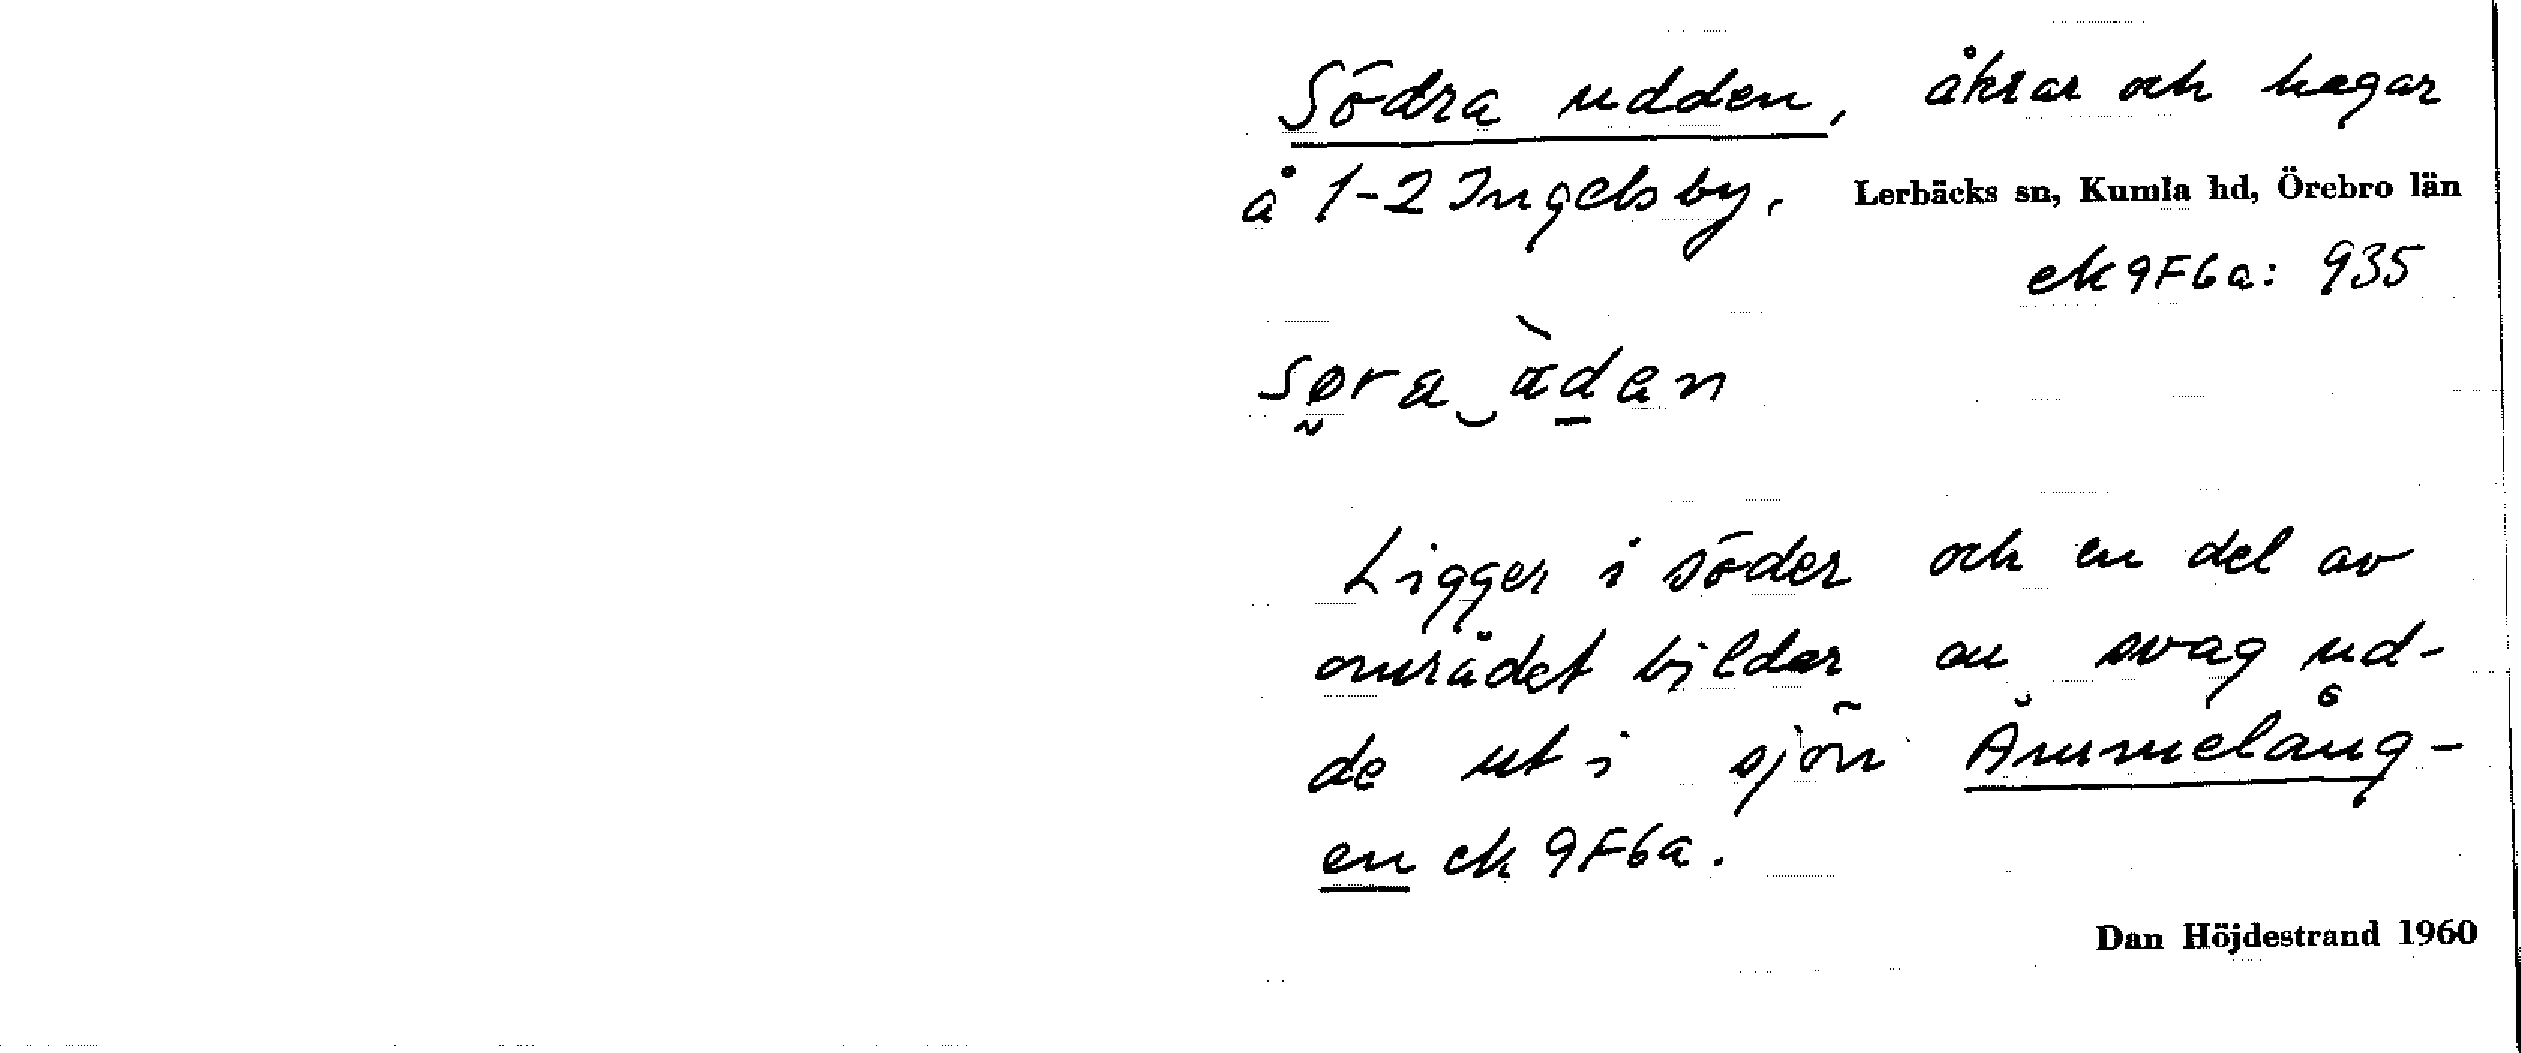 Södra udden, åkrar och hagar
å 1-2 Ingelsby. Lerbäcks sn, Kumla hd, Örebro län
ek 9F6a: 935
Søra ‿ ädan
Ligger i söder och en del av
området bildar en svag ud-
de ut i sjön Ämmelång-
en ek 9F6a.
Dan Höjdestrand 1960